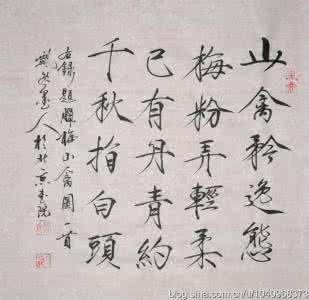 山禽矜逸態
梅粉弄輕柔
已有丹青約
千秋指白頭
右錄題臘梅山禽圖一首
墨人於北京書院
blog.sina.com.cn/u/1040908373